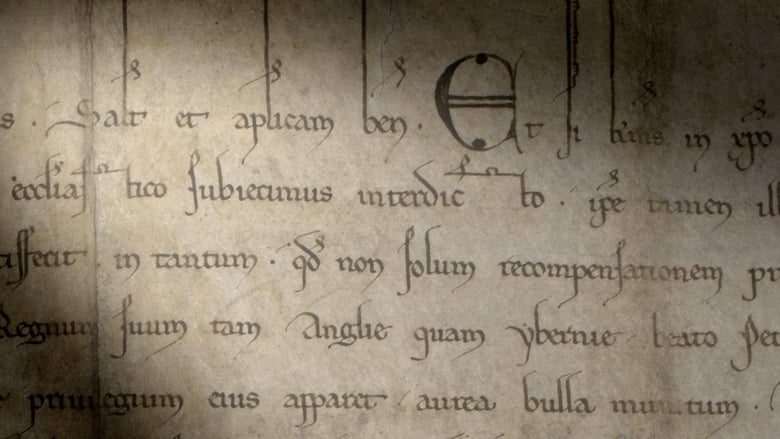 s. Salt et aplicam ben. Et si in xpo
eccliastico subiecimus interdicto. ipe tamen ill
in tantum. qd non solum recompensationem pr
Regnum suum tam Anglie quam ybernie beato Pet
priuilegium eius apparet. aurea bulla munitum.